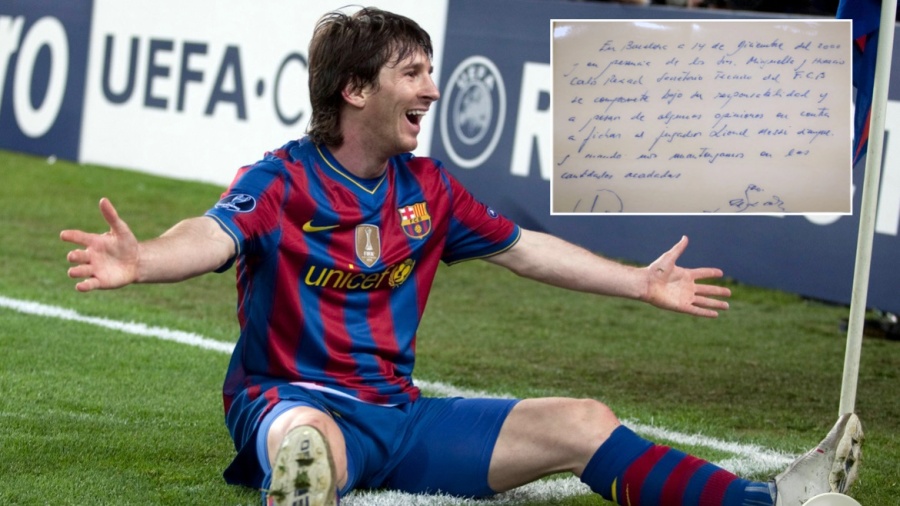 ro
UEFA•C
UEFA
R
unicef
En Barcelona a 14 de Diciembre del 2000
y en presencia de los Srs. Minguella y Horacio
Carlos Rexach Secretario Tecnico del F.C.B
se compromete bajo su responsabilidad y
a pesar de algunas opiniones en contra
a fichar al jugador Lionel Messi siempre
y cuando nos mantengamos en las
cantidades acordadas